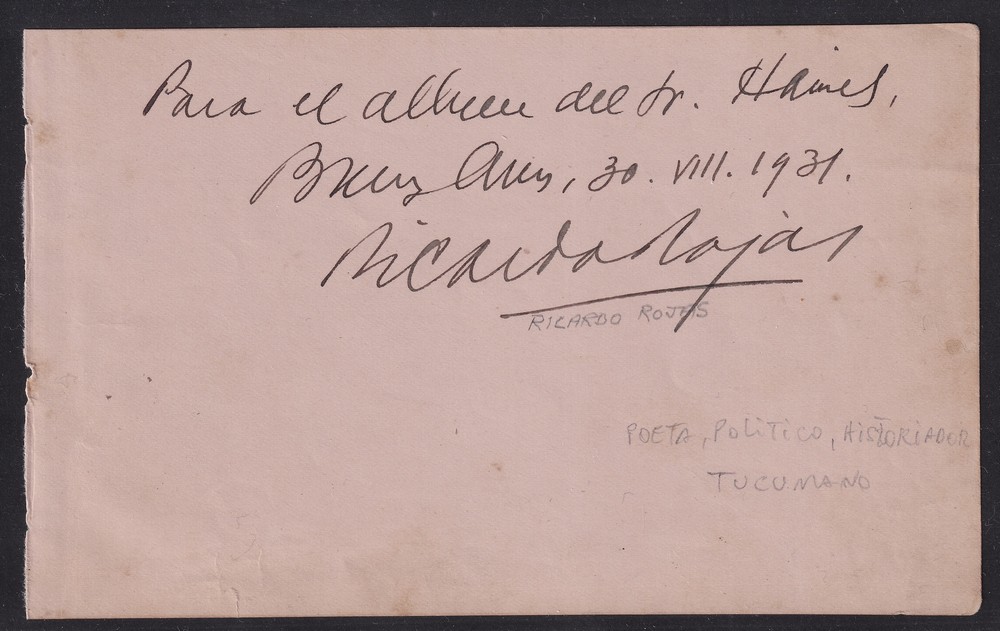 Para el album del Sr. Haines,
Buenos Aires, 30. VIII. 1931.
Ricardo Rojas
RICARDO ROJAS
POETA, POLITICO, HISTORIADOR
TUCUMANO